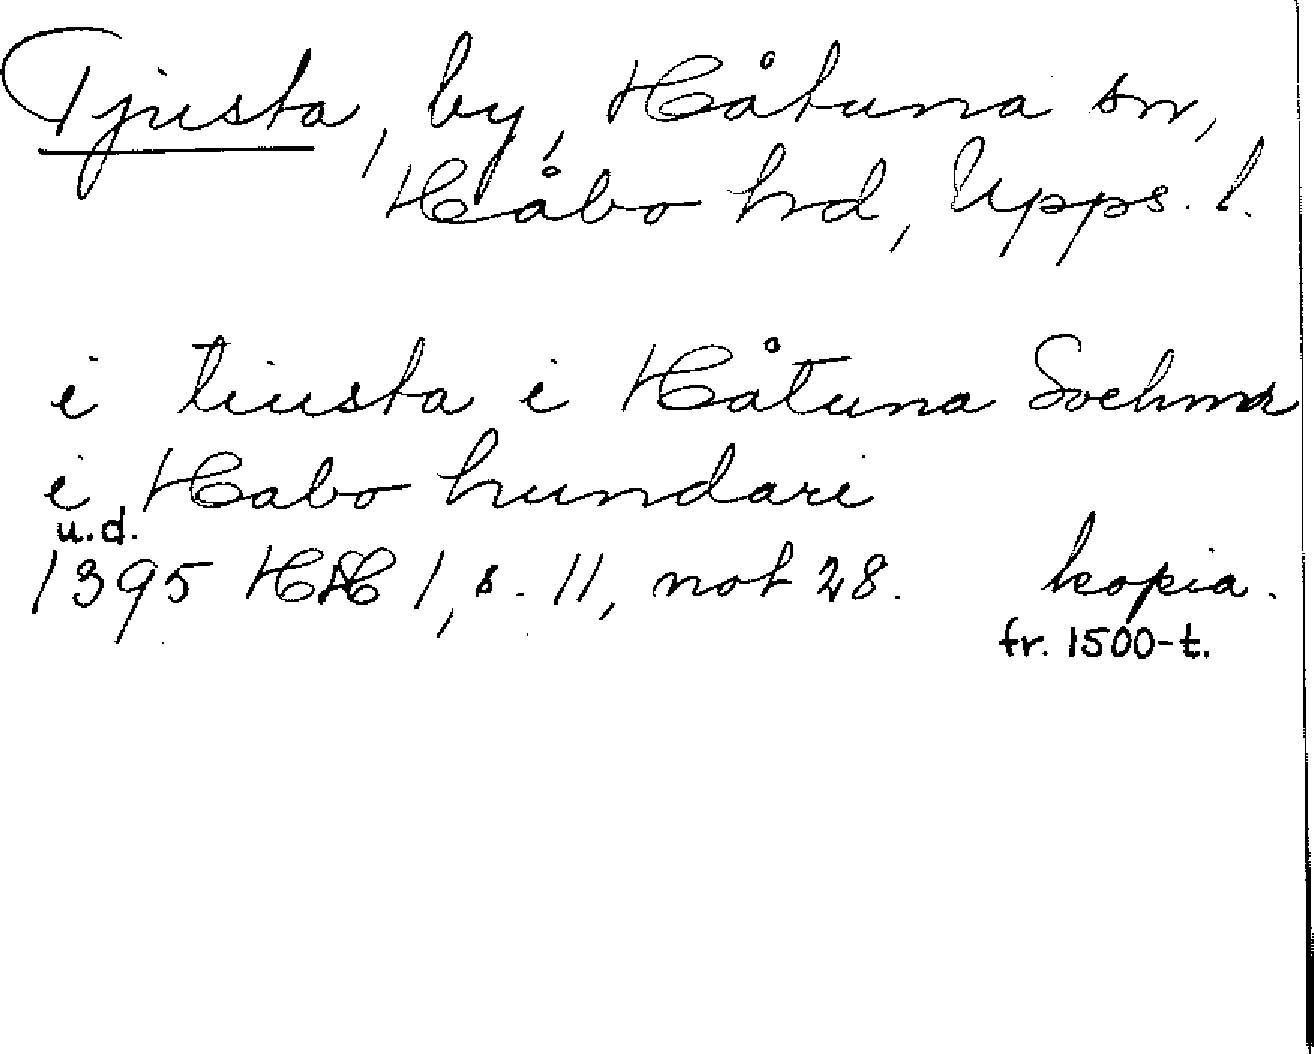 Tjusta, by, Håtuna sn,
Håbo hd, Upps. l.
i tiusta i Håtuna Sochnn
i Habo hundari
u.d.
1395 HH 1, s. 11, not 28. kopia.
fr. 1500-t.